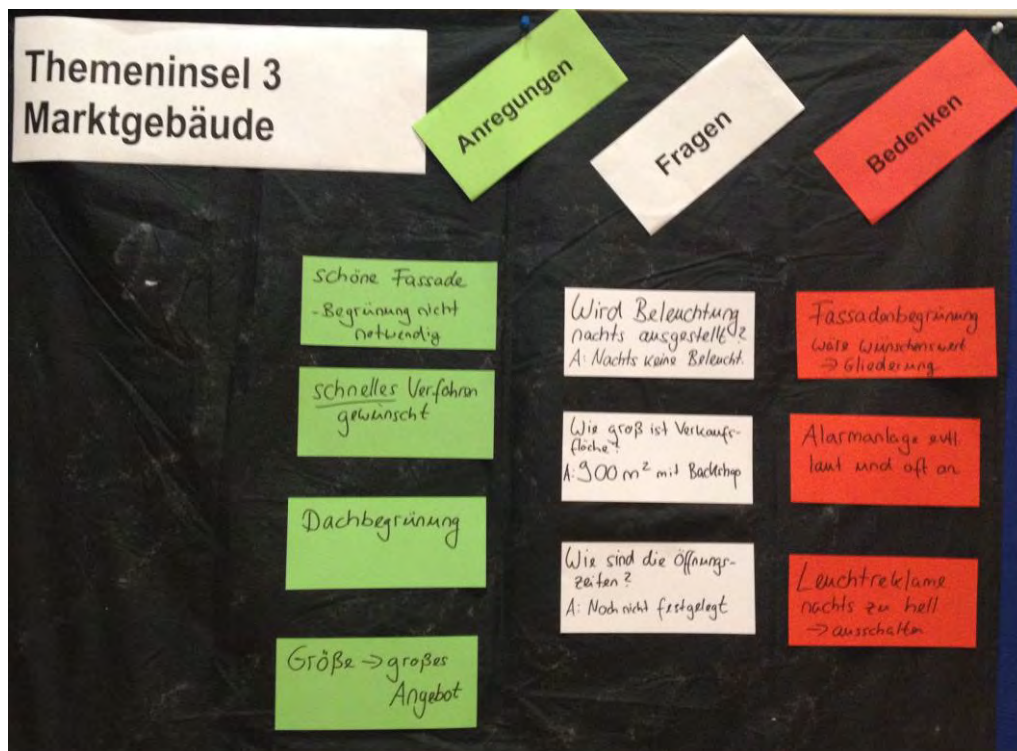 Themeninsel 3
Marktgebäude
Anregungen
Fragen
Bedenken
schöne Fassade
- Begrünung nicht
notwendig
schnelles Verfahren
gewünscht
Dachbegrünung
Größe → großes
Angebot
Wird Beleuchtung
nachts ausgestellt?
A: Nachts keine Beleucht.
Wie groß ist Verkaufs-
fläche?
A: 900 m² mit Backshop
Wie sind die Öffnungs-
zeiten?
A: Noch nicht festgelegt
Fassadenbegrünung
wäre wünschenswert
→ Gliederung
Alarmanlage evtl.
laut und oft an
Leuchtreklame
nachts zu hell
→ ausschalten